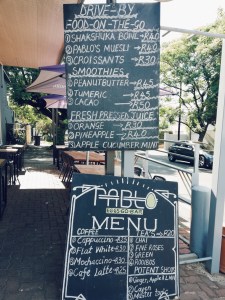 DRIVE-BY
FOOD-ON-THE-GO
SHAKSHUKA BOWL → R40
PABLO'S MUESLI → R40
CROISSANTS → R30
SMOOTHIES
PEANUTBUTTER → R45
TUMERIC → R45
CACAO → R50
FRESH PRESSED JUICE
ORANGE → R30
PINEAPPLE → R40
APPLE CUCUMBER MINT
PABLO
EGGS GO BAR
MENU
COFFEE
Cappuccino
Flat White
Mochaccino
Cafe Latte
TEA'S → R20
CHAI
FIVE ROSES
GREEN
ROOIBOS
POTENT SHOT
Ginger, Apple & L
Cayen
Master